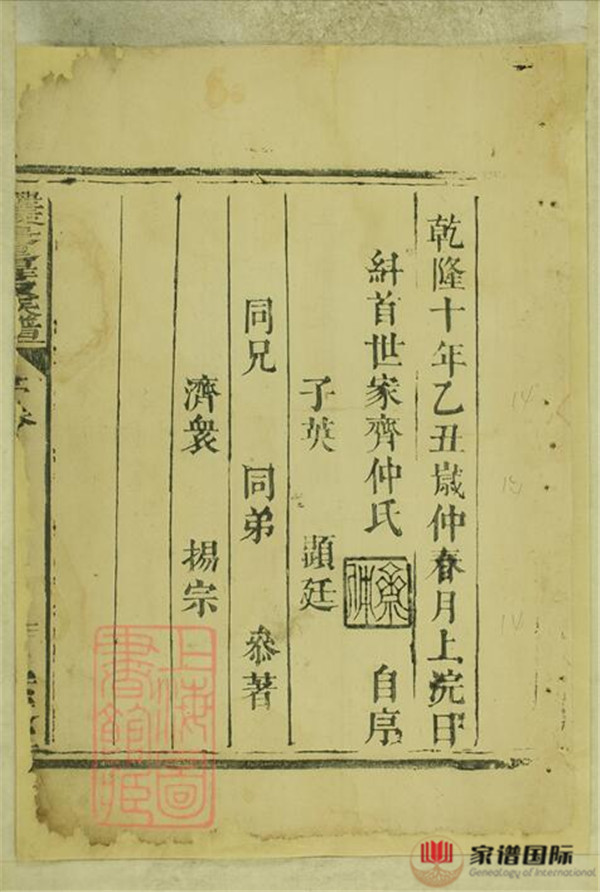 乾隆十年乙丑歲仲春月上浣日
糾首世家齊仲氏 自序
子英 顕廷
同兄 同弟 叅著
濟衆 揚宗
上海圖書館藏
家谱国际
Genealogy of International